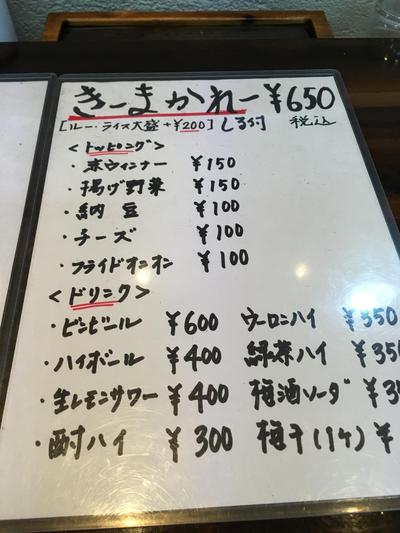 きーまかれー ¥650
[ルー・ライス大盛+¥200] しる付 税込
<トッピング>
・赤ウィンナー ¥150
・揚げ野菜 ¥150
・納豆 ¥100
・チーズ ¥100
・フライドオニオン ¥100
<ドリンク>
・ビンビール ¥600 ウーロンハイ ¥350
・ハイボール ¥400 緑茶ハイ ¥35
・生レモンサワー ¥400 梅酒ソーダ ¥3
・酎ハイ ¥300 梅干(1ヶ) ¥